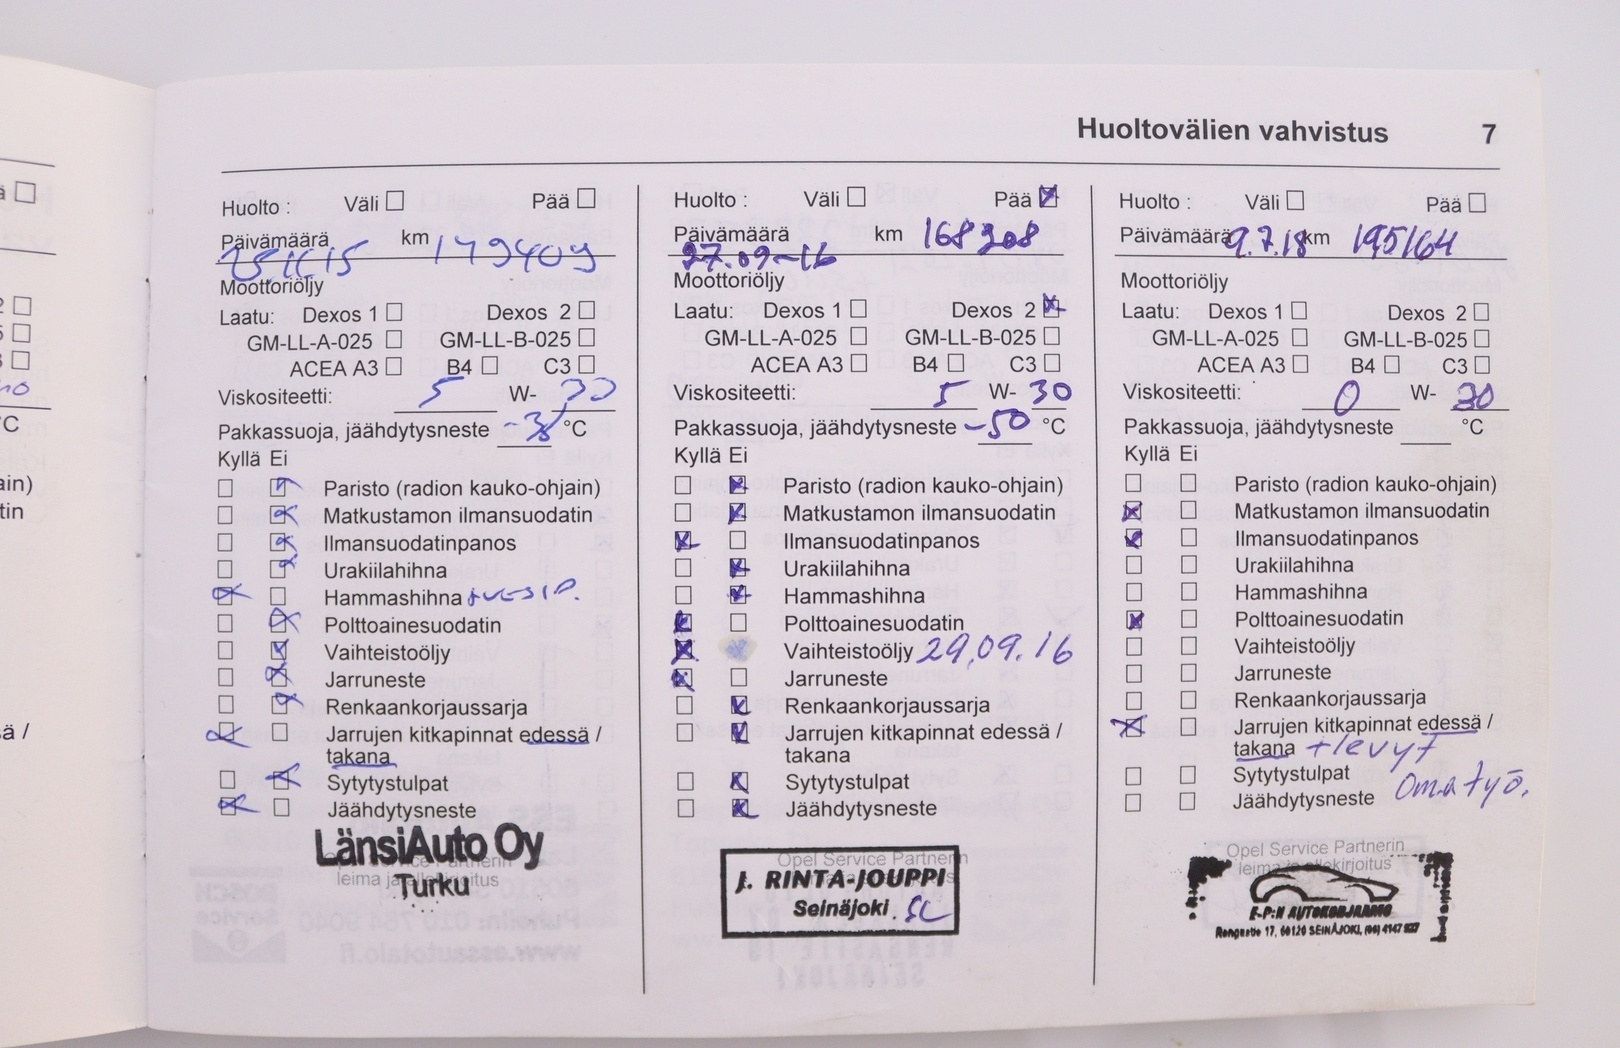 Huoltovälien vahvistus 7
Huolto : Väli Pää
Päivämäärä km 149409
Moottoriöljy
Laatu: Dexos 1 Dexos 2
GM-LL-A-025 GM-LL-B-025
ACEA A3 B4 C3
Viskositeetti: 5 W- 30
Pakkassuoja, jäähdytysneste °C
Kyllä Ei
Paristo (radion kauko-ohjain)
Matkustamon ilmansuodatin
Ilmansuodatinpanos
Urakiilahihna
Hammashihna +VESIP.
Polttoainesuodatin
Vaihteistoöljy
Jarruneste
Renkaankorjaussarja
Jarrujen kitkapinnat edessä /
takana
Sytytystulpat
Jäähdytysneste
LänsiAuto Oy
Opel Service Partnerin
leima ja allekirjoitus
Turku
Huolto : Väli Pää
Päivämäärä 27.09-16 km 168208
Moottoriöljy
Laatu: Dexos 1 Dexos 2
GM-LL-A-025 GM-LL-B-025
ACEA A3 B4 C3
Viskositeetti: 5 W- 30
Pakkassuoja, jäähdytysneste -50 °C
Kyllä Ei
Paristo (radion kauko-ohjain)
Matkustamon ilmansuodatin
Ilmansuodatinpanos
Urakiilahihna
Hammashihna
Polttoainesuodatin
Vaihteistoöljy 29.09.16
Jarruneste
Renkaankorjaussarja
Jarrujen kitkapinnat edessä /
takana
Sytytystulpat
Jäähdytysneste
Opel Service Partnerin
J. RINTA-JOUPPI
Seinäjoki
Huolto : Väli Pää
Päivämäärä 9.7.18 km 195164
Moottoriöljy
Laatu: Dexos 1 Dexos 2
GM-LL-A-025 GM-LL-B-025
ACEA A3 B4 C3
Viskositeetti: 0 W- 30
Pakkassuoja, jäähdytysneste °C
Kyllä Ei
Paristo (radion kauko-ohjain)
Matkustamon ilmansuodatin
Ilmansuodatinpanos
Urakiilahihna
Hammashihna
Polttoainesuodatin
Vaihteistoöljy
Jarruneste
Renkaankorjaussarja
Jarrujen kitkapinnat edessä /
takana +levyt
Sytytystulpat
Jäähdytysneste Oma työ.
Opel Service Partnerin
leima ja allekirjoitus
E-P:N AUTOKORJAAMO
Rengastie 17, 60120 SEINÄJOKI, (06) 4147 827